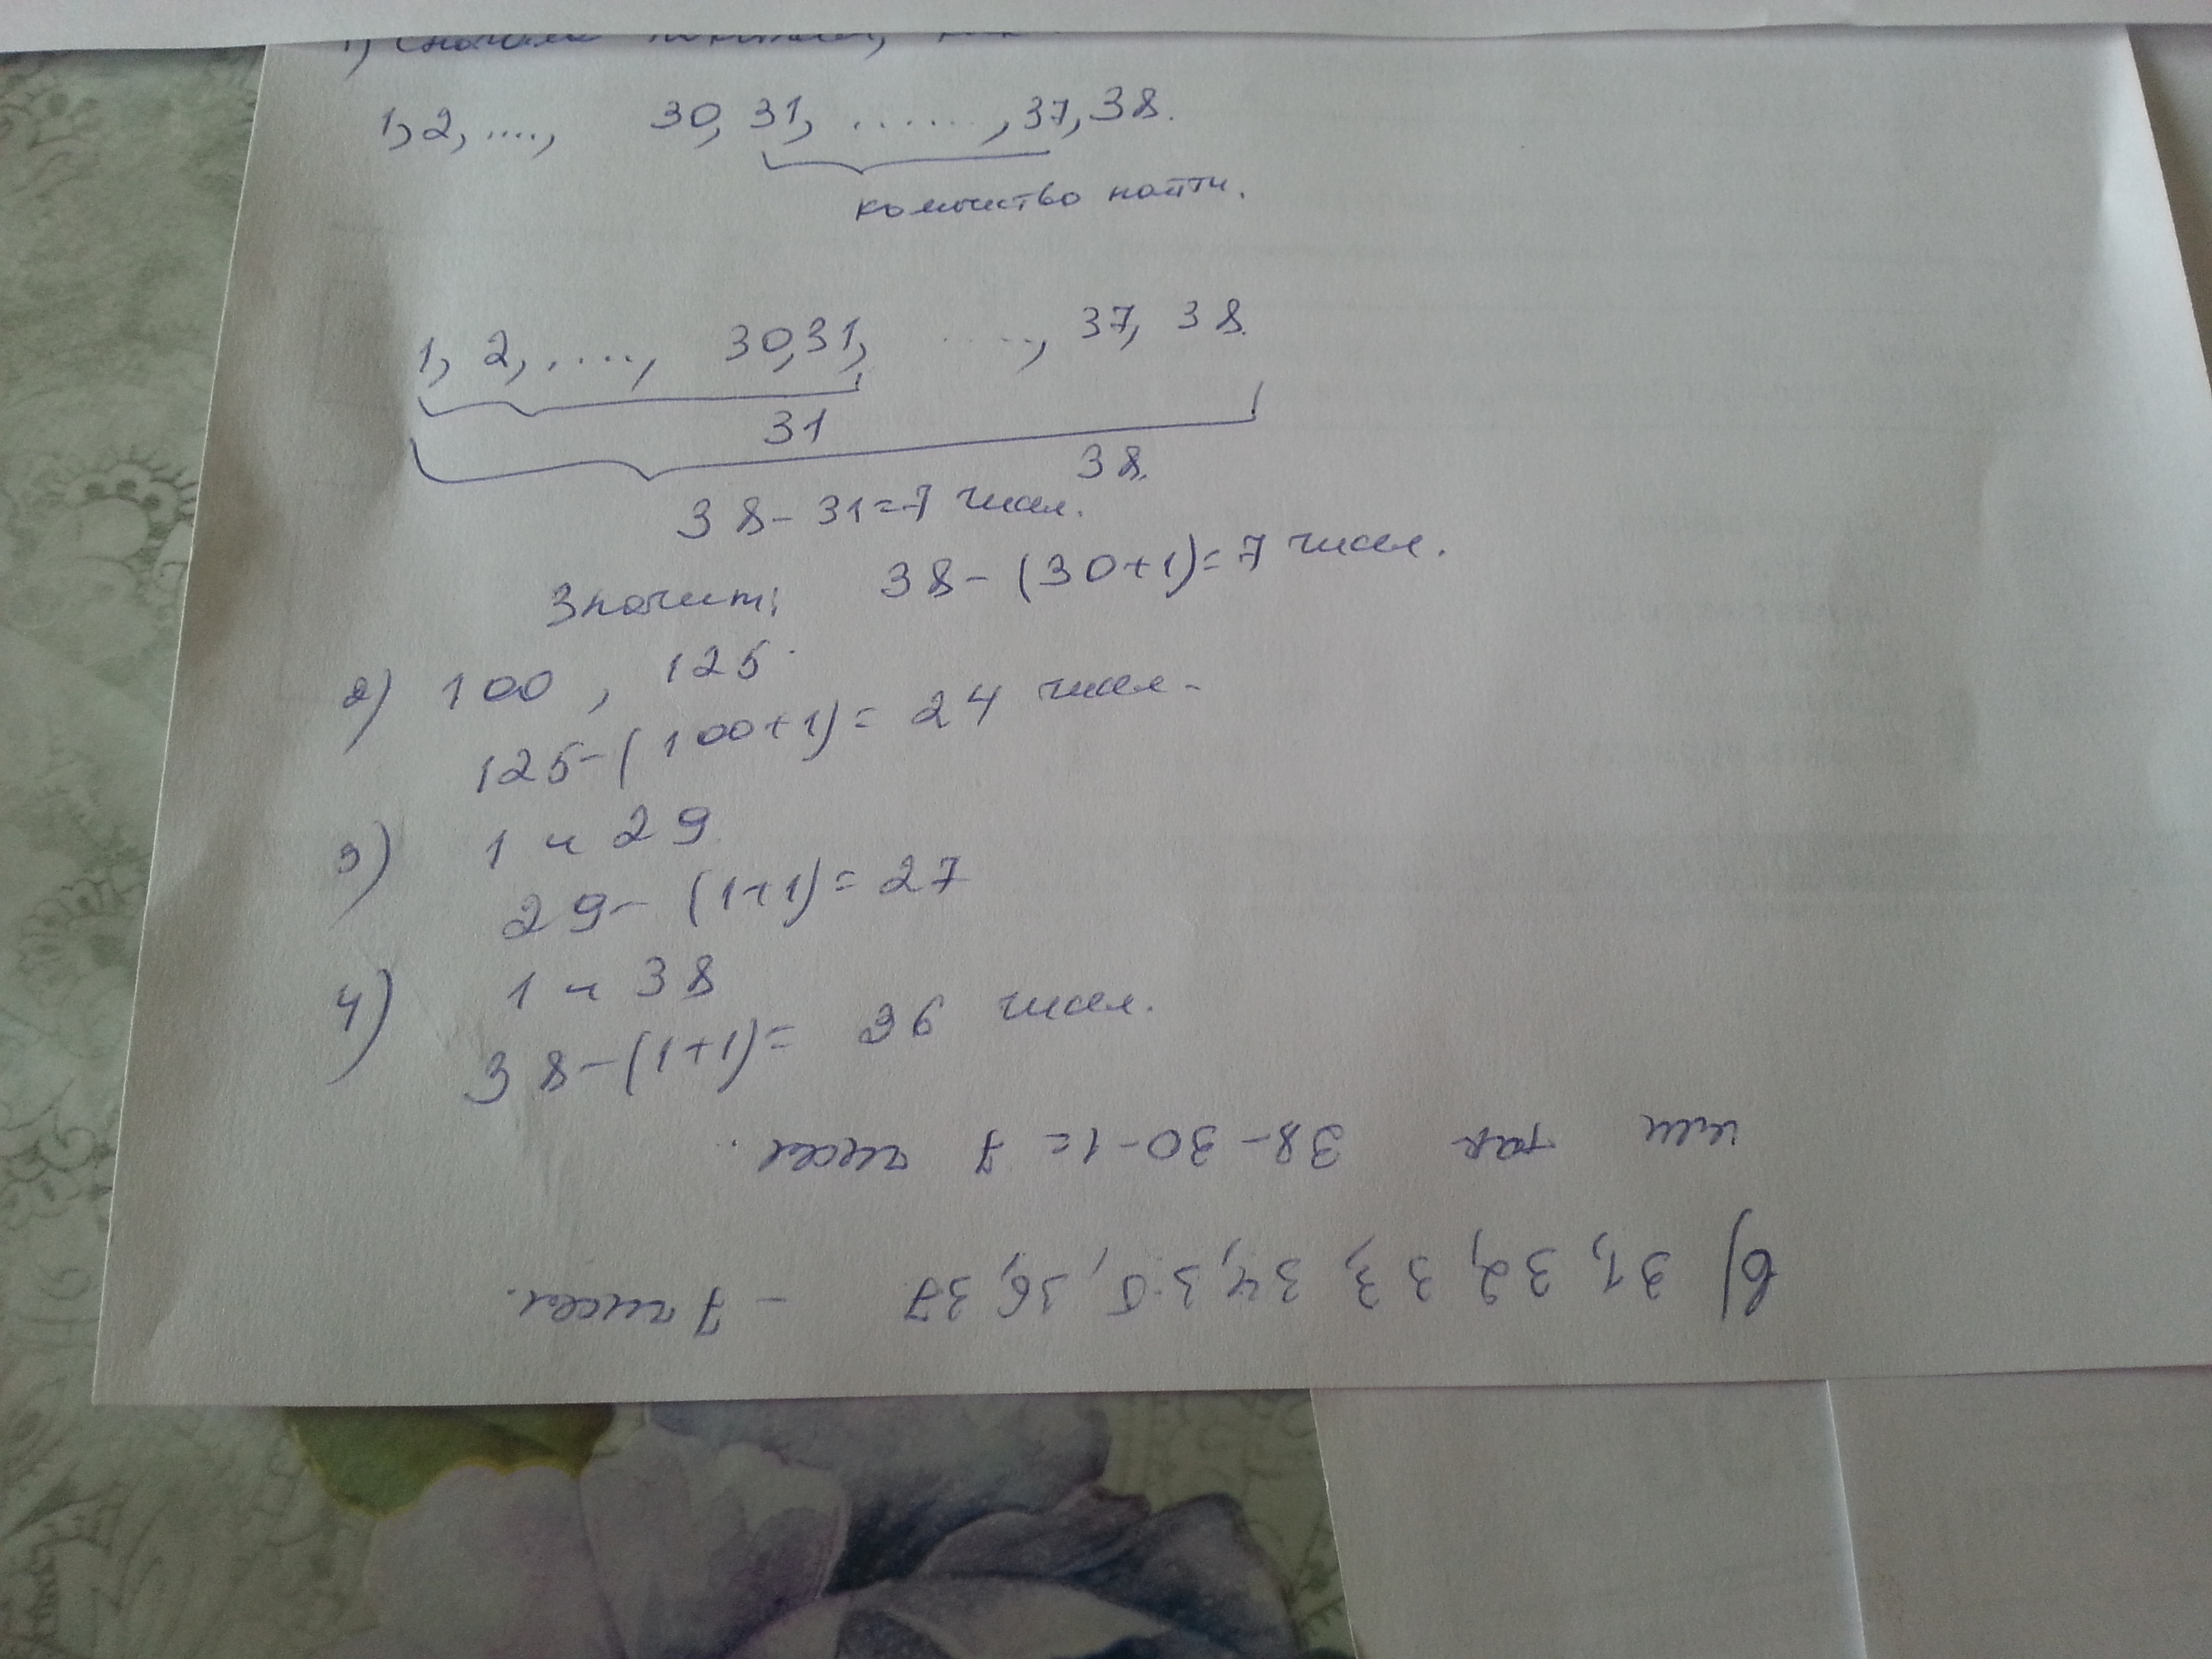 1) Сначала
1, 2, ...., 30, 31, ......, 37, 38.
количество найти.
1, 2, ...., 30, 31, ...., 37, 38.
31
38.
38 - 31 = 7 чисел.
Значит: 38 - (30+1) = 7 чисел.
2) 100, 125.
125 - (100+1) = 24 чисел.
3) 1 и 29
29 - (1+1) = 27
4) 1 и 38
38 - (1+1) = 36 чисел.
в) 31, 32, 33, 34, 35, 36, 37 - 7 чисел.
или так 38 - 30 - 1 = 7 чисел.